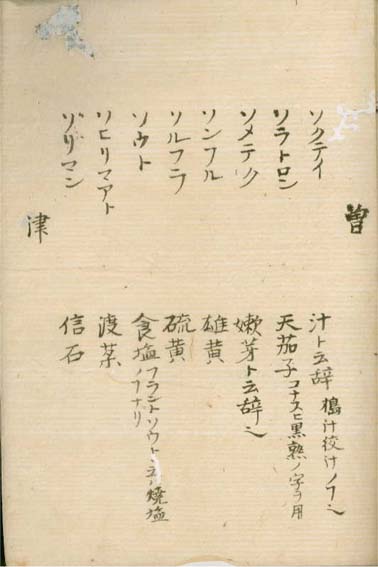 曽
ソクテイ 汁ト云辞 搗汁絞汁ノヿ也
ソラトロン 天茄子 コナスヒ黒熟ノ字ヲ用
ソメテク 嫩芽ト云辞也
ソンフル 雄黄
ソルフラ 硫黄
ソウト 食塩 フラントソウト云ハ焼塩
ノヿナリ
ソヒリマアト
ゾリマン 信石
津